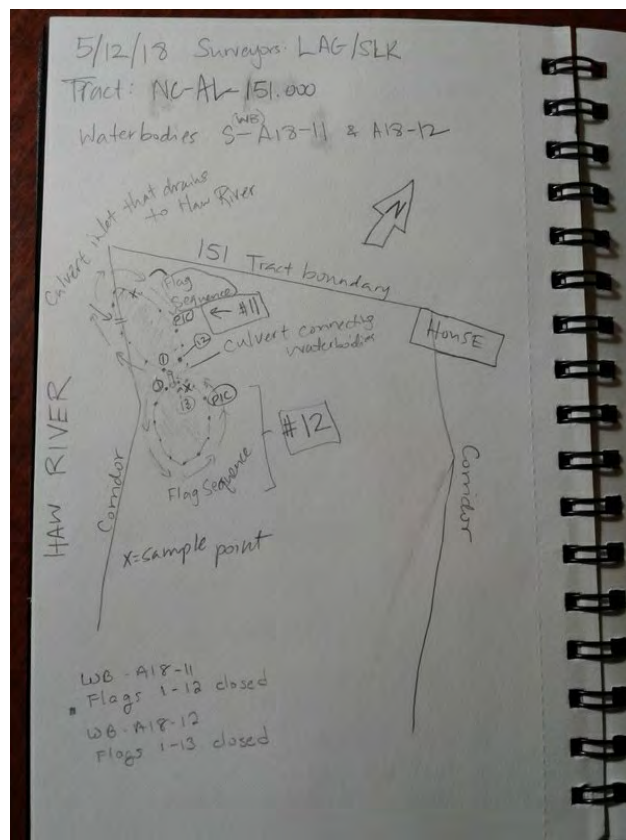 5/12/18 Surveyors: LAG/SLK
Tract: NC-AL-151.000
(WB)
Waterbodies S-A18-11 & A18-12
Culvert inlet that drains
to Haw River
N
151 Tract boundary
Flag
Sequence
PIC
← #11
House
12
Culvert connecting
waterbodies
1
1
x
x
13
PIC
#12
Flag Sequence
HAW RIVER
Corridor
Corridor
x=sample point
WB-A18-11
Flags 1-12 closed
WB-A18-12
Flags 1-13 closed